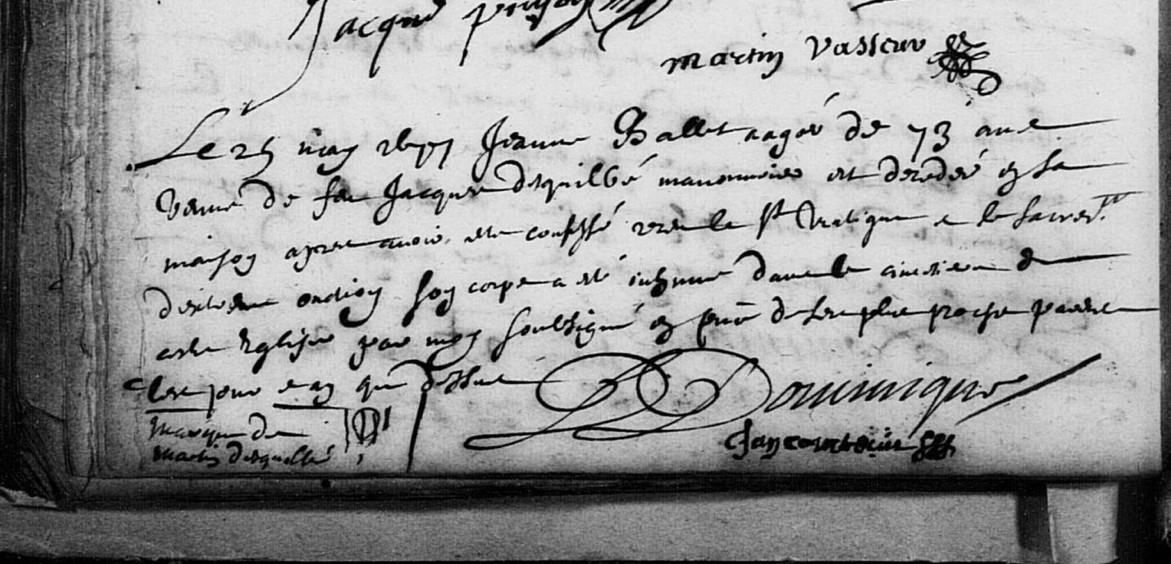 Jacque
martin Vasseur
Le 25 may 1677 Jeanne Ballet aagée de 73 ans
veuve de feu Jacque desquilbé manouvrier est decedée en sa
maison apres avoir esté confessé receu le st Viatique et le sacremt
d'extreme onction son corps a esté inhumé dans le cimetiere de
ceste Eglise par moy soubsigné en présence de ses plus proches parens
les jour et an que dessus Dominique
marque de
martin desquilbé